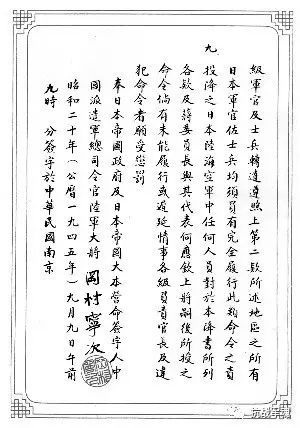 九
級軍官及士兵轉達遵照上第二款所述地區之所有
日本軍官佐士兵均須負有完全履行此類命令之責
投降之日本陸海空軍中任何人員對於本降書所列
各款及蔣委員長與其代表何應欽上將嗣後所授之
命令倘有未能履行或遲延情事各級負責官長及違
犯命令者願受懲罰
奉日本帝國政府及日本帝國大本營命簽字人中
國派遣軍總司令官陸軍大將 岡村寧次
昭和二十年(公曆一九四五年)九月九日午前
九時 分簽字於中華民國南京
抗战手雷